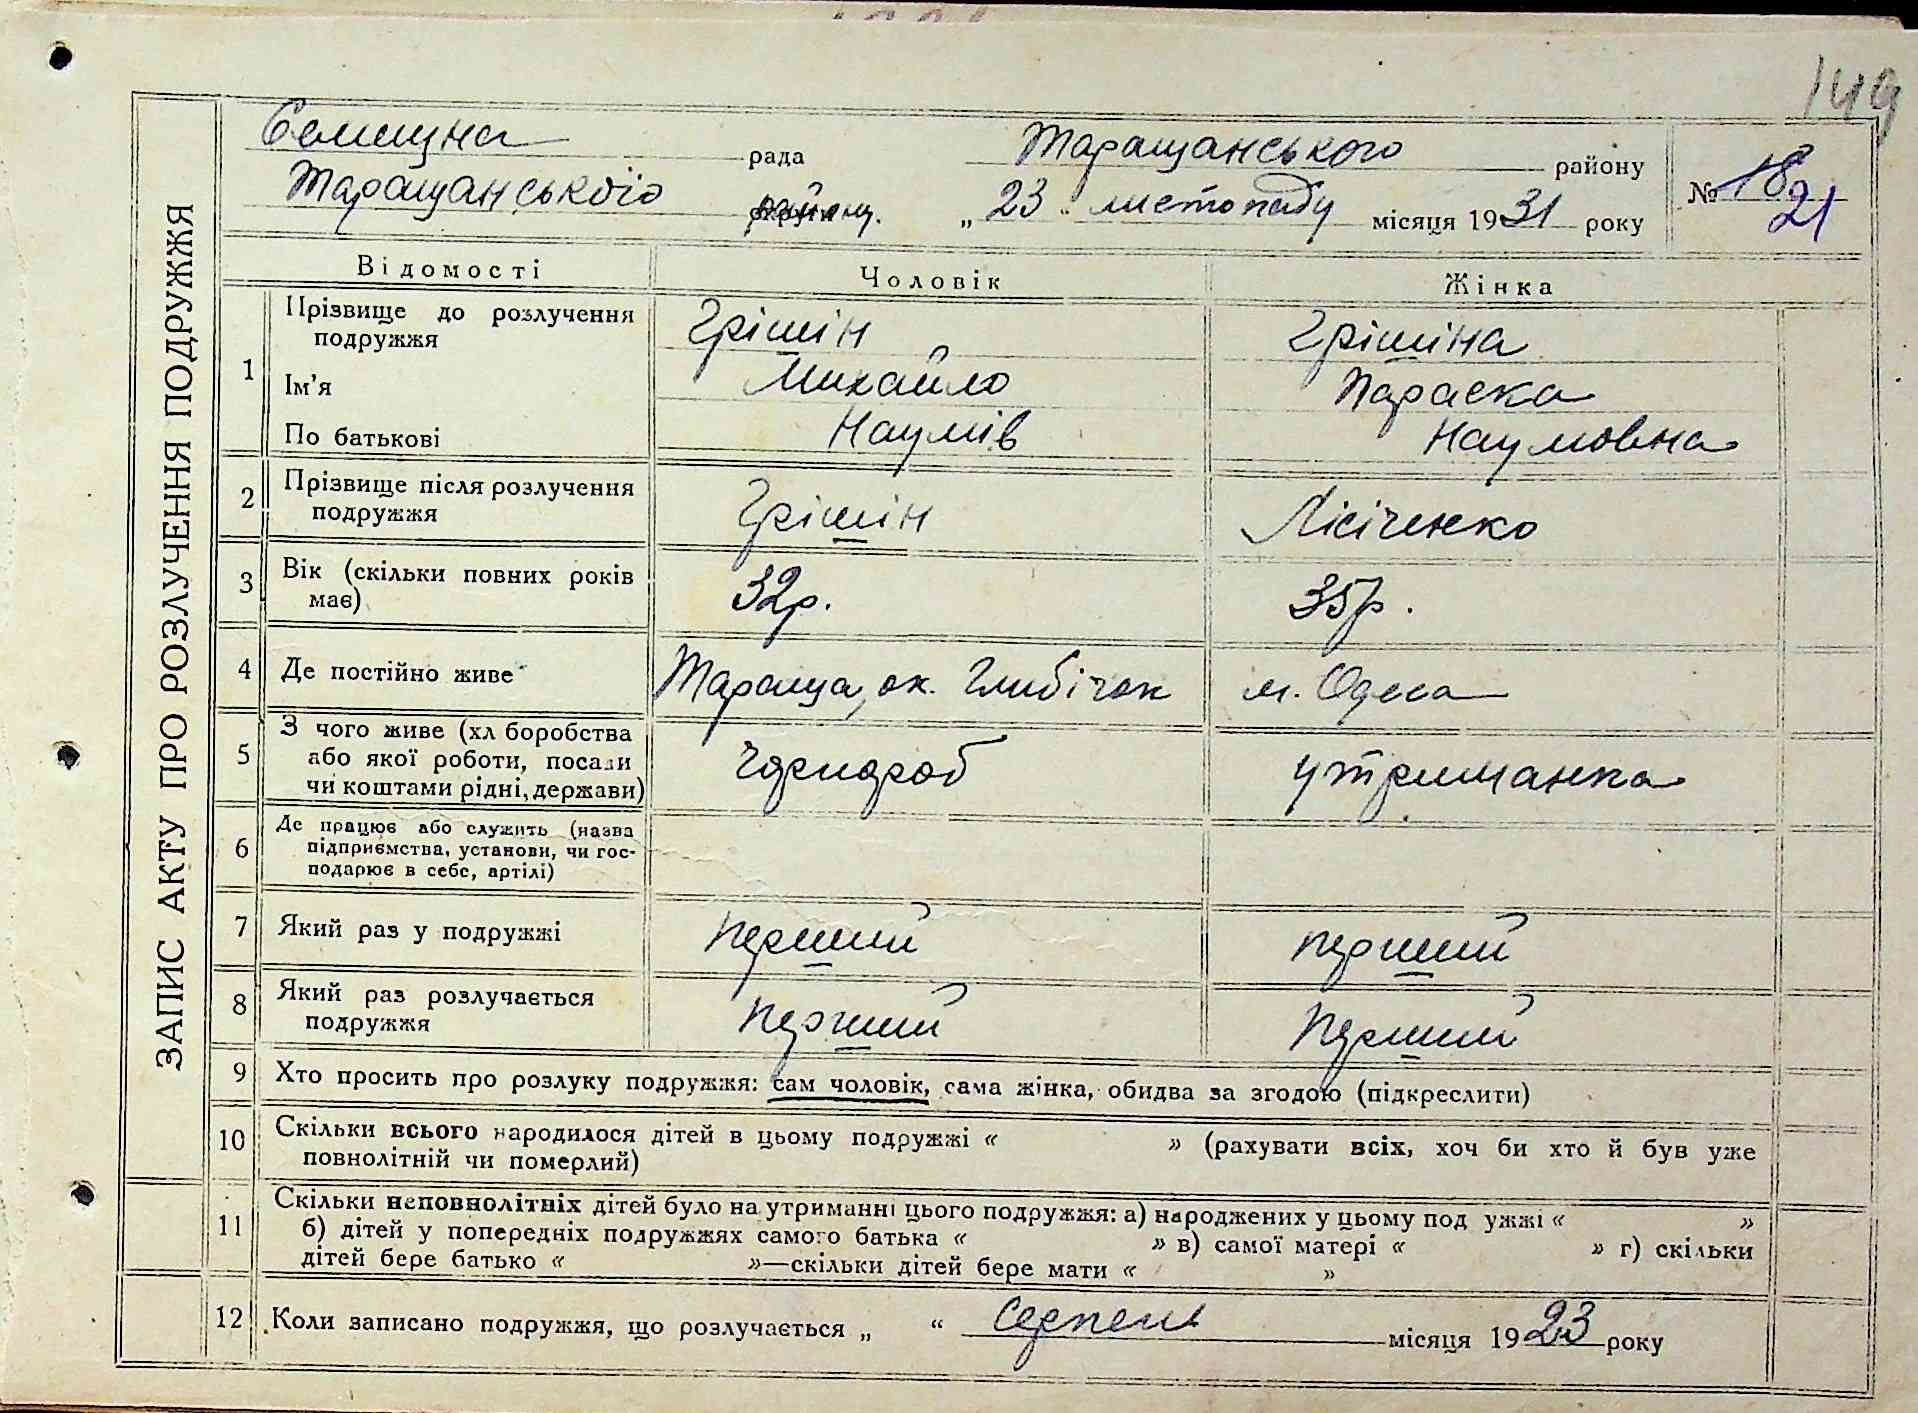 149
ЗАПИС АКТУ ПРО РОЗЛУЧЕННЯ ПОДРУЖЖЯ
Селищна рада Таращанського району
Таращанського району. „ 23 “ листопаду місяця 1931 року
№ 18 21
Відомості Чоловік Жінка
1 Прізвище до розлучення подружжя Грішин Грішина
Ім'я Михайло Параска
По батькові Наумів Наумовна
2 Прізвище після розлучення подружжя Грішин Лісіченко
3 Вік (скільки повних років має) 32р. 35р.
4 Де постійно живе Тараща, ок. Глибічок м. Одеса
5 З чого живе (хл боробства або якої роботи, посади чи коштами рідні, держави) Чорнороб утриманка
6 Де працює або служить (назва підприємства, установи, чи господарює в себе, артілі)
7 Який раз у подружжі перший перший
8 Який раз розлучається подружжя перший перший
9 Хто просить про розлуку подружжя: сам чоловік, сама жінка, обидва за згодою (підкреслити)
10 Скільки всього народилося дітей в цьому подружжі « » (рахувати всіх, хоч би хто й був уже
повнолітній чи померлий)
11 Скільки неповнолітніх дітей було на утриманні цього подружжя: а) народжених у цьому под ужжі « »
б) дітей у попередніх подружжях самого батька « » в) самої матері « » г) скільки
дітей бере батько « »—скільки дітей бере мати « »
12 Коли записано подружжя, що розлучається „ “ серпень місяця 1923 року